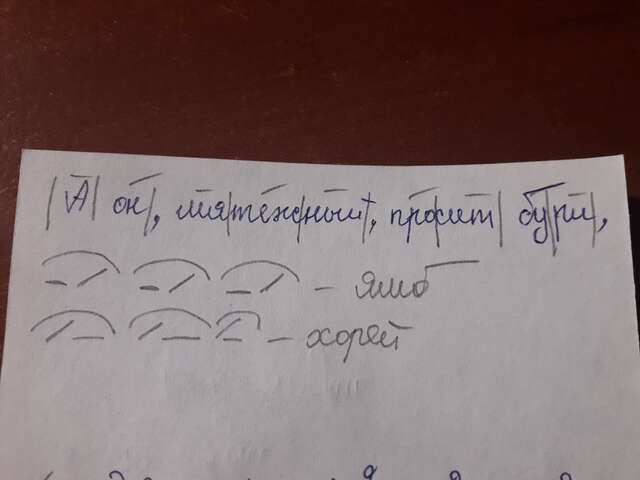 А он, мятежный, просит бури,
– ямб
– хорей